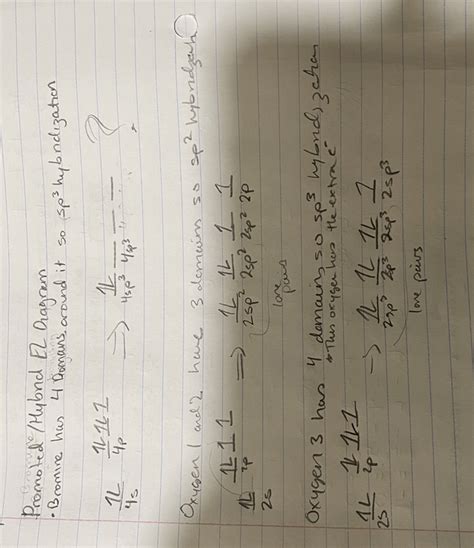 Promoted/Hybrid EL Diagram
• Bromine has 4 Domains around it so sp³ hybridization
1L 1L 1L 1 => 1L ?
4s 4p 4sp³ 4sp³
Oxygen 1 and 2 have 3 domains so sp² hybridization
1L 1L 1 1 => 1L 1L 1 1
2s 2p 2sp² 2sp² 2sp² 2p
lone pairs
Oxygen 3 has 4 domains so sp³ hybridization
*This oxygen has the extra e⁻
1L 1L 1L 1 -> 1L 1L 1L 1
2s 2p 2sp³ 2sp³ 2sp³ 2sp³
lone pairs